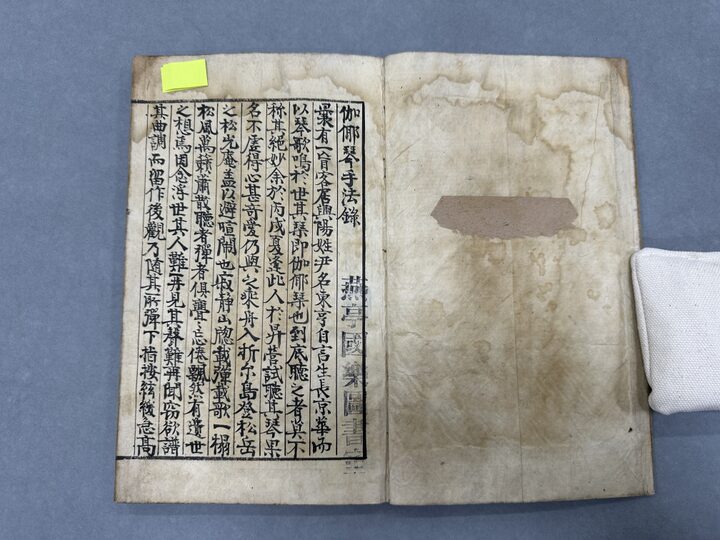 伽倻琴手法錄
曩有一盲客居興陽姓尹名東亨自言生長京華而
以琴歌鳴於世其琴卽伽倻琴也到底聽之者莫不
称其絕妙余於丙戌夏逢此人於昇營試聽其琴果
名不虛得心甚奇愛仍與之乘舟入折尔島登松岳
之松光庵盖以避喧鬧也寂静山牕載彈載歌一榻
松風萬籟蕭散聽者彈者俱亹亹忘倦飄然有遺世
之想焉因念浮世其人難再見其琴難再聞窃欲譜
其曲調而留作後觀乃隨其所彈下指按絃緩急高
燕亭國樂圖書